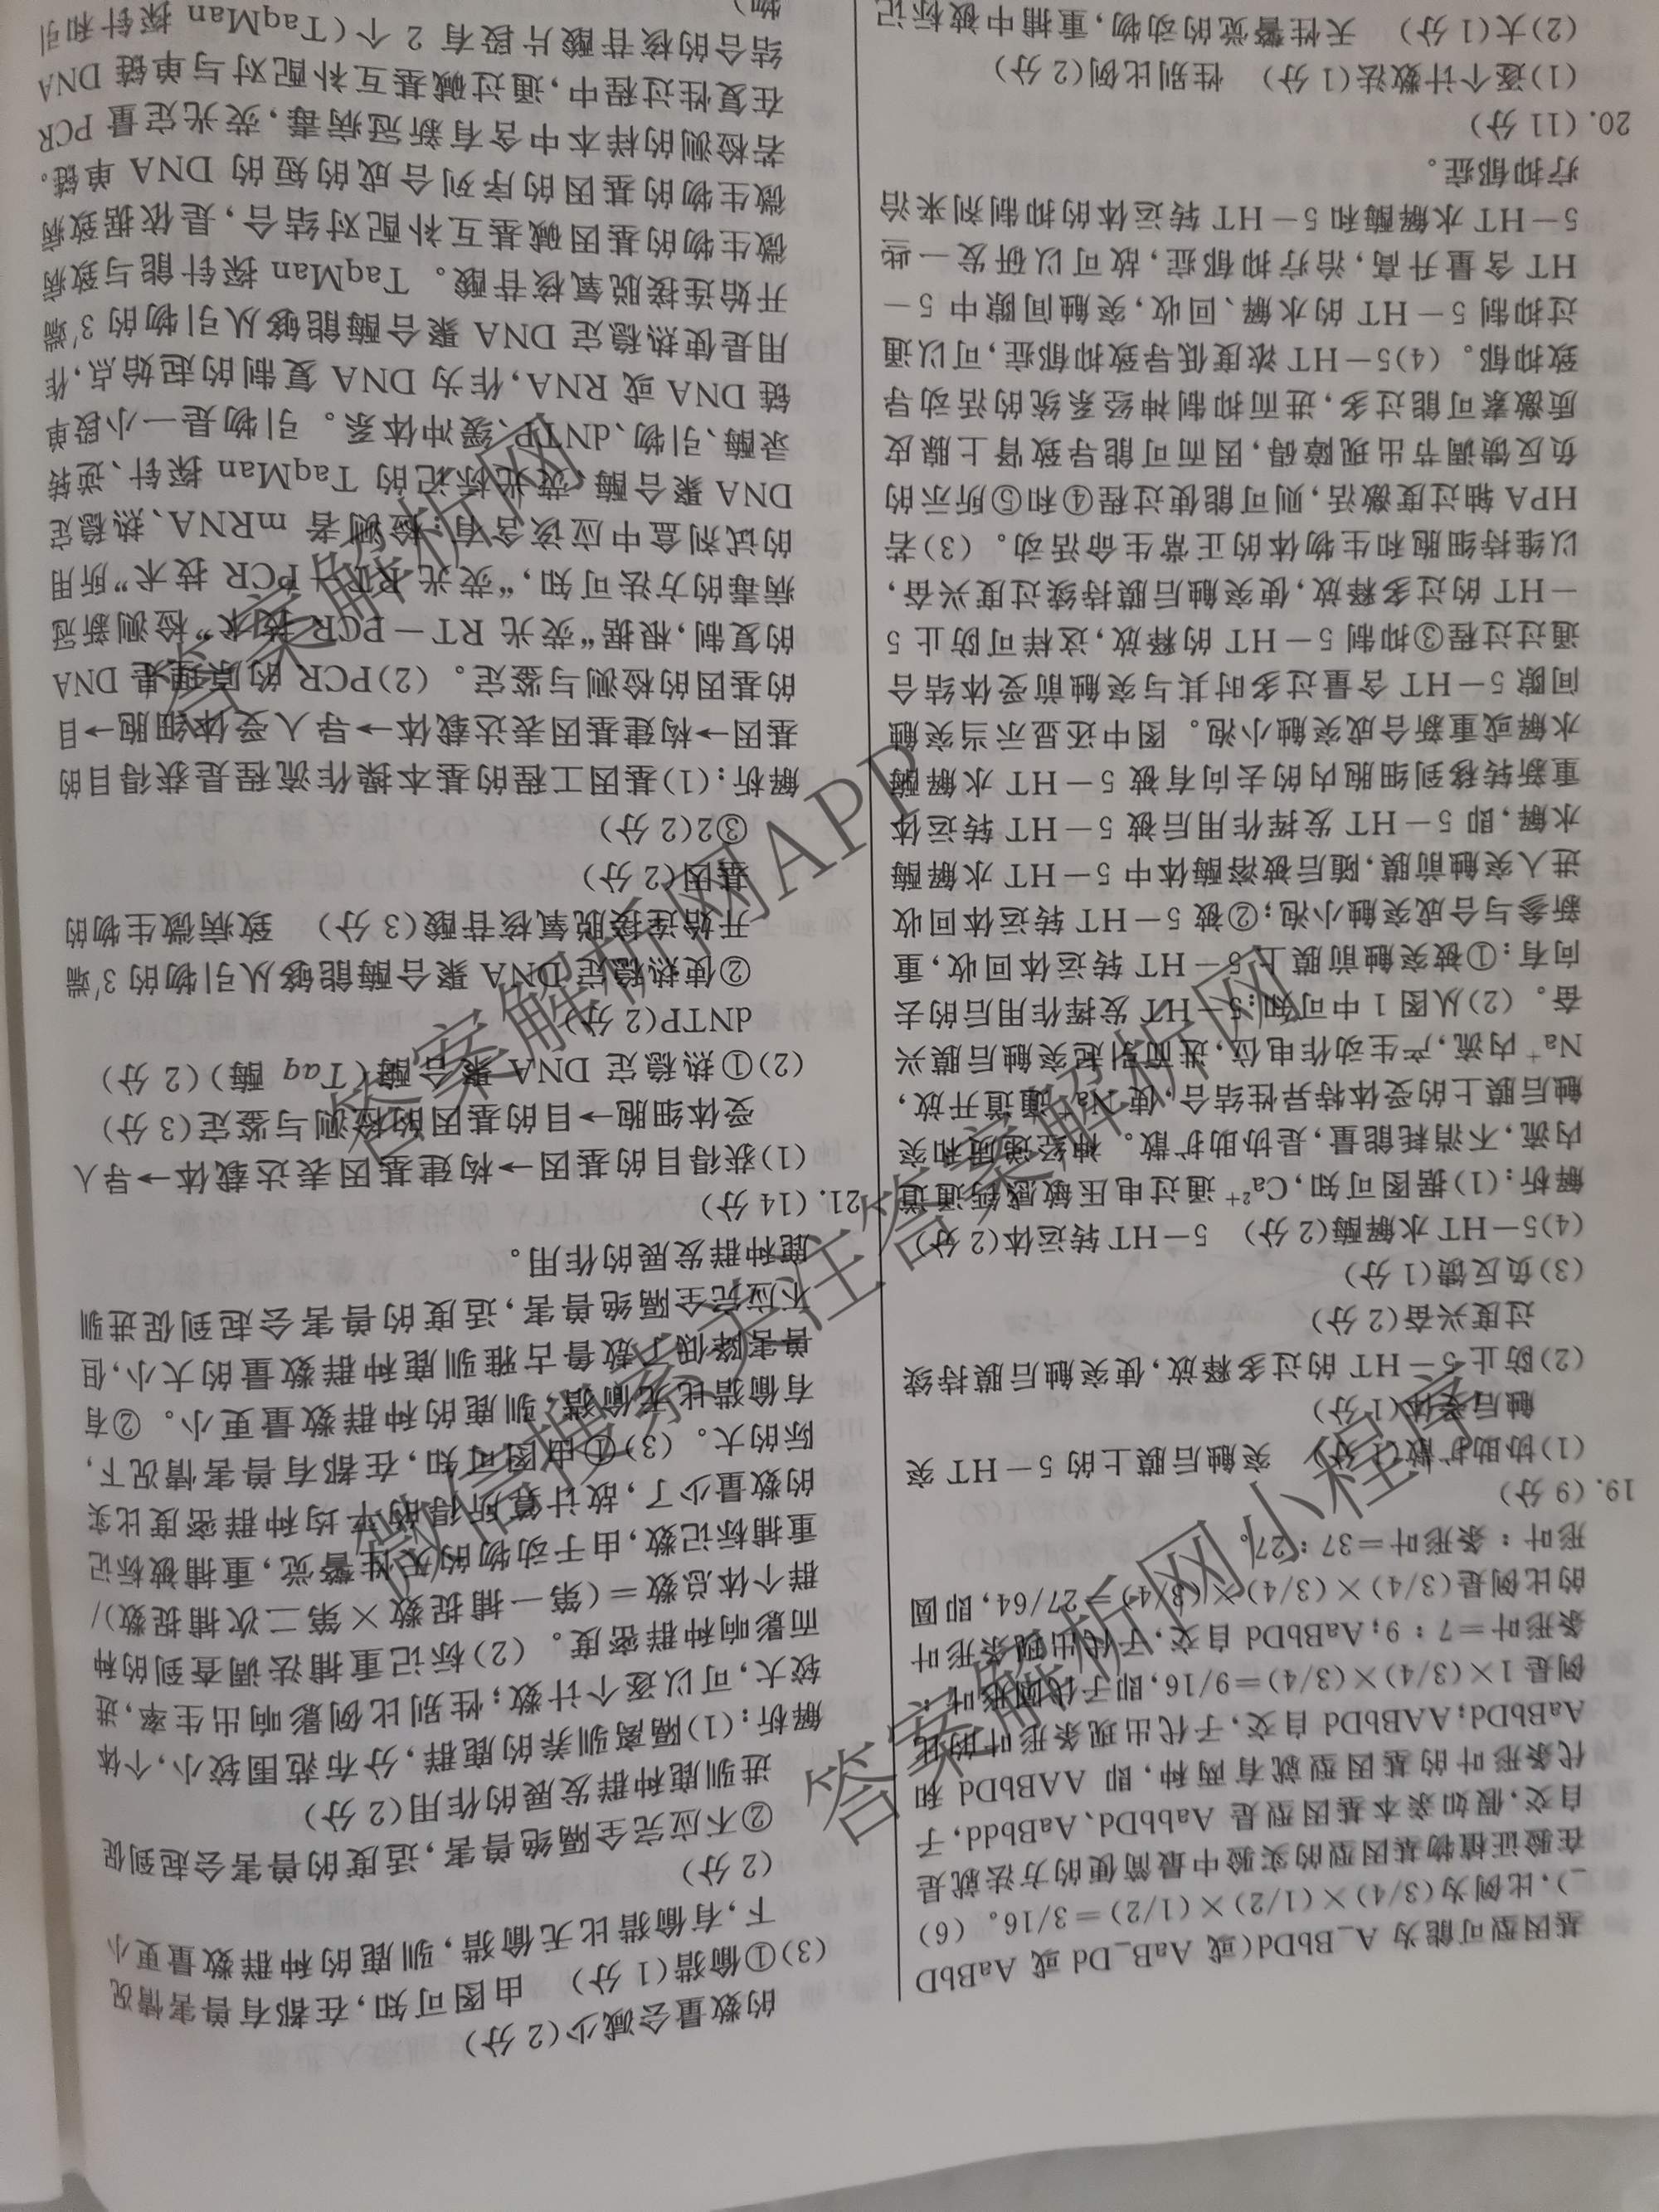 基因型可能为 A_BbDd(或 AaB_Dd 或 AaBbD
_),比例为(3/4)×(1/2)×(1/2)=3/16。(6)
在验证植物基因型的实验中最简便的方法就是
自交,假如亲本基因型是 AabbDd、AaBbdd,子
代条形叶的基因型就有两种,即 AABbDd 和
AaBbDd;AABbDd 自交,子代出现条形叶的比
例是 1×(3/4)×(3/4)=9/16,即子代圆形叶:
条形叶=7:9;AaBbDd 自交,子代出现条形叶
的比例是(3/4)×(3/4)×(3/4)=27/64,即圆
形叶:条形叶=37:27。
19.(9 分)
(1)协助扩散(1 分) 突触后膜上的 5-HT 突
触后受体(1 分)
(2)防止 5-HT 的过多释放,使突触后膜持续
过度兴奋(2 分)
(3)负反馈(1 分)
(4)5-HT 水解酶(2 分) 5-HT 转运体(2 分)
解析:(1)据图可知,Ca²⁺ 通过电压敏感钙通道
内流,不消耗能量,是协助扩散。神经递质和突
触后膜上的受体特异性结合,使 Na⁺ 通道开放,
Na⁺ 内流,产生动作电位,进而引起突触后膜兴
奋。(2)从图 1 中可知:5-HT 发挥作用后的去
向有:①被突触前膜上 5-HT 转运体回收,重
新参与合成突触小泡;②被 5-HT 转运体回收
进入突触前膜,随后被溶酶体中 5-HT 水解酶
水解,即 5-HT 发挥作用后被 5-HT 转运体
重新转移到细胞内的去向有被 5-HT 水解酶
水解或重新合成突触小泡。图中还显示当突触
间隙 5-HT 含量过多时其与突触前受体结合
通过过程③抑制 5-HT 的释放,这样可防止 5
-HT 的过多释放,使突触后膜持续过度兴奋,
以维持细胞和生物体的正常生命活动。(3)若
HPA 轴过度激活,则可能使过程④和⑤所示的
负反馈调节出现障碍,因而可能导致肾上腺皮
质激素可能过多,进而抑制神经系统的活动导
致抑郁。(4)5-HT 浓度低导致抑郁症,可以通
过抑制 5-HT 的水解、回收,突触间隙中 5-
HT 含量升高,治疗抑郁症,故可以研发一些
5-HT 水解酶和 5-HT 转运体的抑制剂来治
疗抑郁症。
20.(11 分)
(1)逐个计数法(1 分) 性别比例(2 分)
(2)大(1 分) 天性警觉的动物,重捕中被标记
的数量会减少(2 分)
(3)①偷猎(1 分) 由图可知,在都有兽害情况
下,有偷猎比无偷猎,驯鹿的种群数量更小
(2 分)
②不应完全隔绝兽害,适度的兽害会起到促
进驯鹿种群发展的作用(2 分)
解析:(1)隔离驯养的鹿群,分布范围较小,个体
较大,可以逐个计数;性别比例影响出生率,进
而影响种群密度。(2)标记重捕法调查到的种
群个体总数=(第一捕捉数×第二次捕捉数)/
重捕标记数,由于动物的天性警觉,重捕被标记
的数量少了,故计算所得的平均种群密度比实
际的大。(3)①由图可知,在都有兽害情况下,
有偷猎比无偷猎,驯鹿的种群数量更小。②有
兽害降低了敖鲁古雅驯鹿种群数量的大小,但
不应完全隔绝兽害,适度的兽害会起到促进驯
鹿种群发展的作用。
21.(14 分)
(1)获得目的基因→构建基因表达载体→导入
受体细胞→目的基因的检测与鉴定(3 分)
(2)①热稳定 DNA 聚合酶(Taq 酶)(2 分)
dNTP(2 分)
②使热稳定 DNA 聚合酶能够从引物的 3′端
开始连接脱氧核苷酸(3 分) 致病微生物的
基因(2 分)
③2(2 分)
解析:(1)基因工程的基本操作流程是获得目的
基因→构建基因表达载体→导入受体细胞→目
的基因的检测与鉴定。(2)PCR 的原理是 DNA
的复制,根据“荧光 RT-PCR 技术”检测新冠
病毒的方法可知,“荧光 RT-PCR 技术”所用
的试剂盒中应该含有:检测者 mRNA、热稳定
DNA 聚合酶、荧光标记的 TaqMan 探针、逆转
录酶、引物、dNTP、缓冲体系。引物是一小段单
链 DNA 或 RNA,作为 DNA 复制的起始点,作
用是使热稳定 DNA 聚合酶能够从引物的 3′端
开始连接脱氧核苷酸。TaqMan 探针能与致病
微生物的基因碱基互补配对结合,是依据致病
微生物的基因的序列合成的短的 DNA 单链。
若检测的样本中含有新冠病毒,荧光定量 PCR
在复性过程中,通过碱基互补配对与单链 DNA
结合的核苷酸片段有 2 个(TaqMan 探针和引
物)
微信搜索关注答案解析网
答案解析网小程序
答案解析网APP
答案解析网